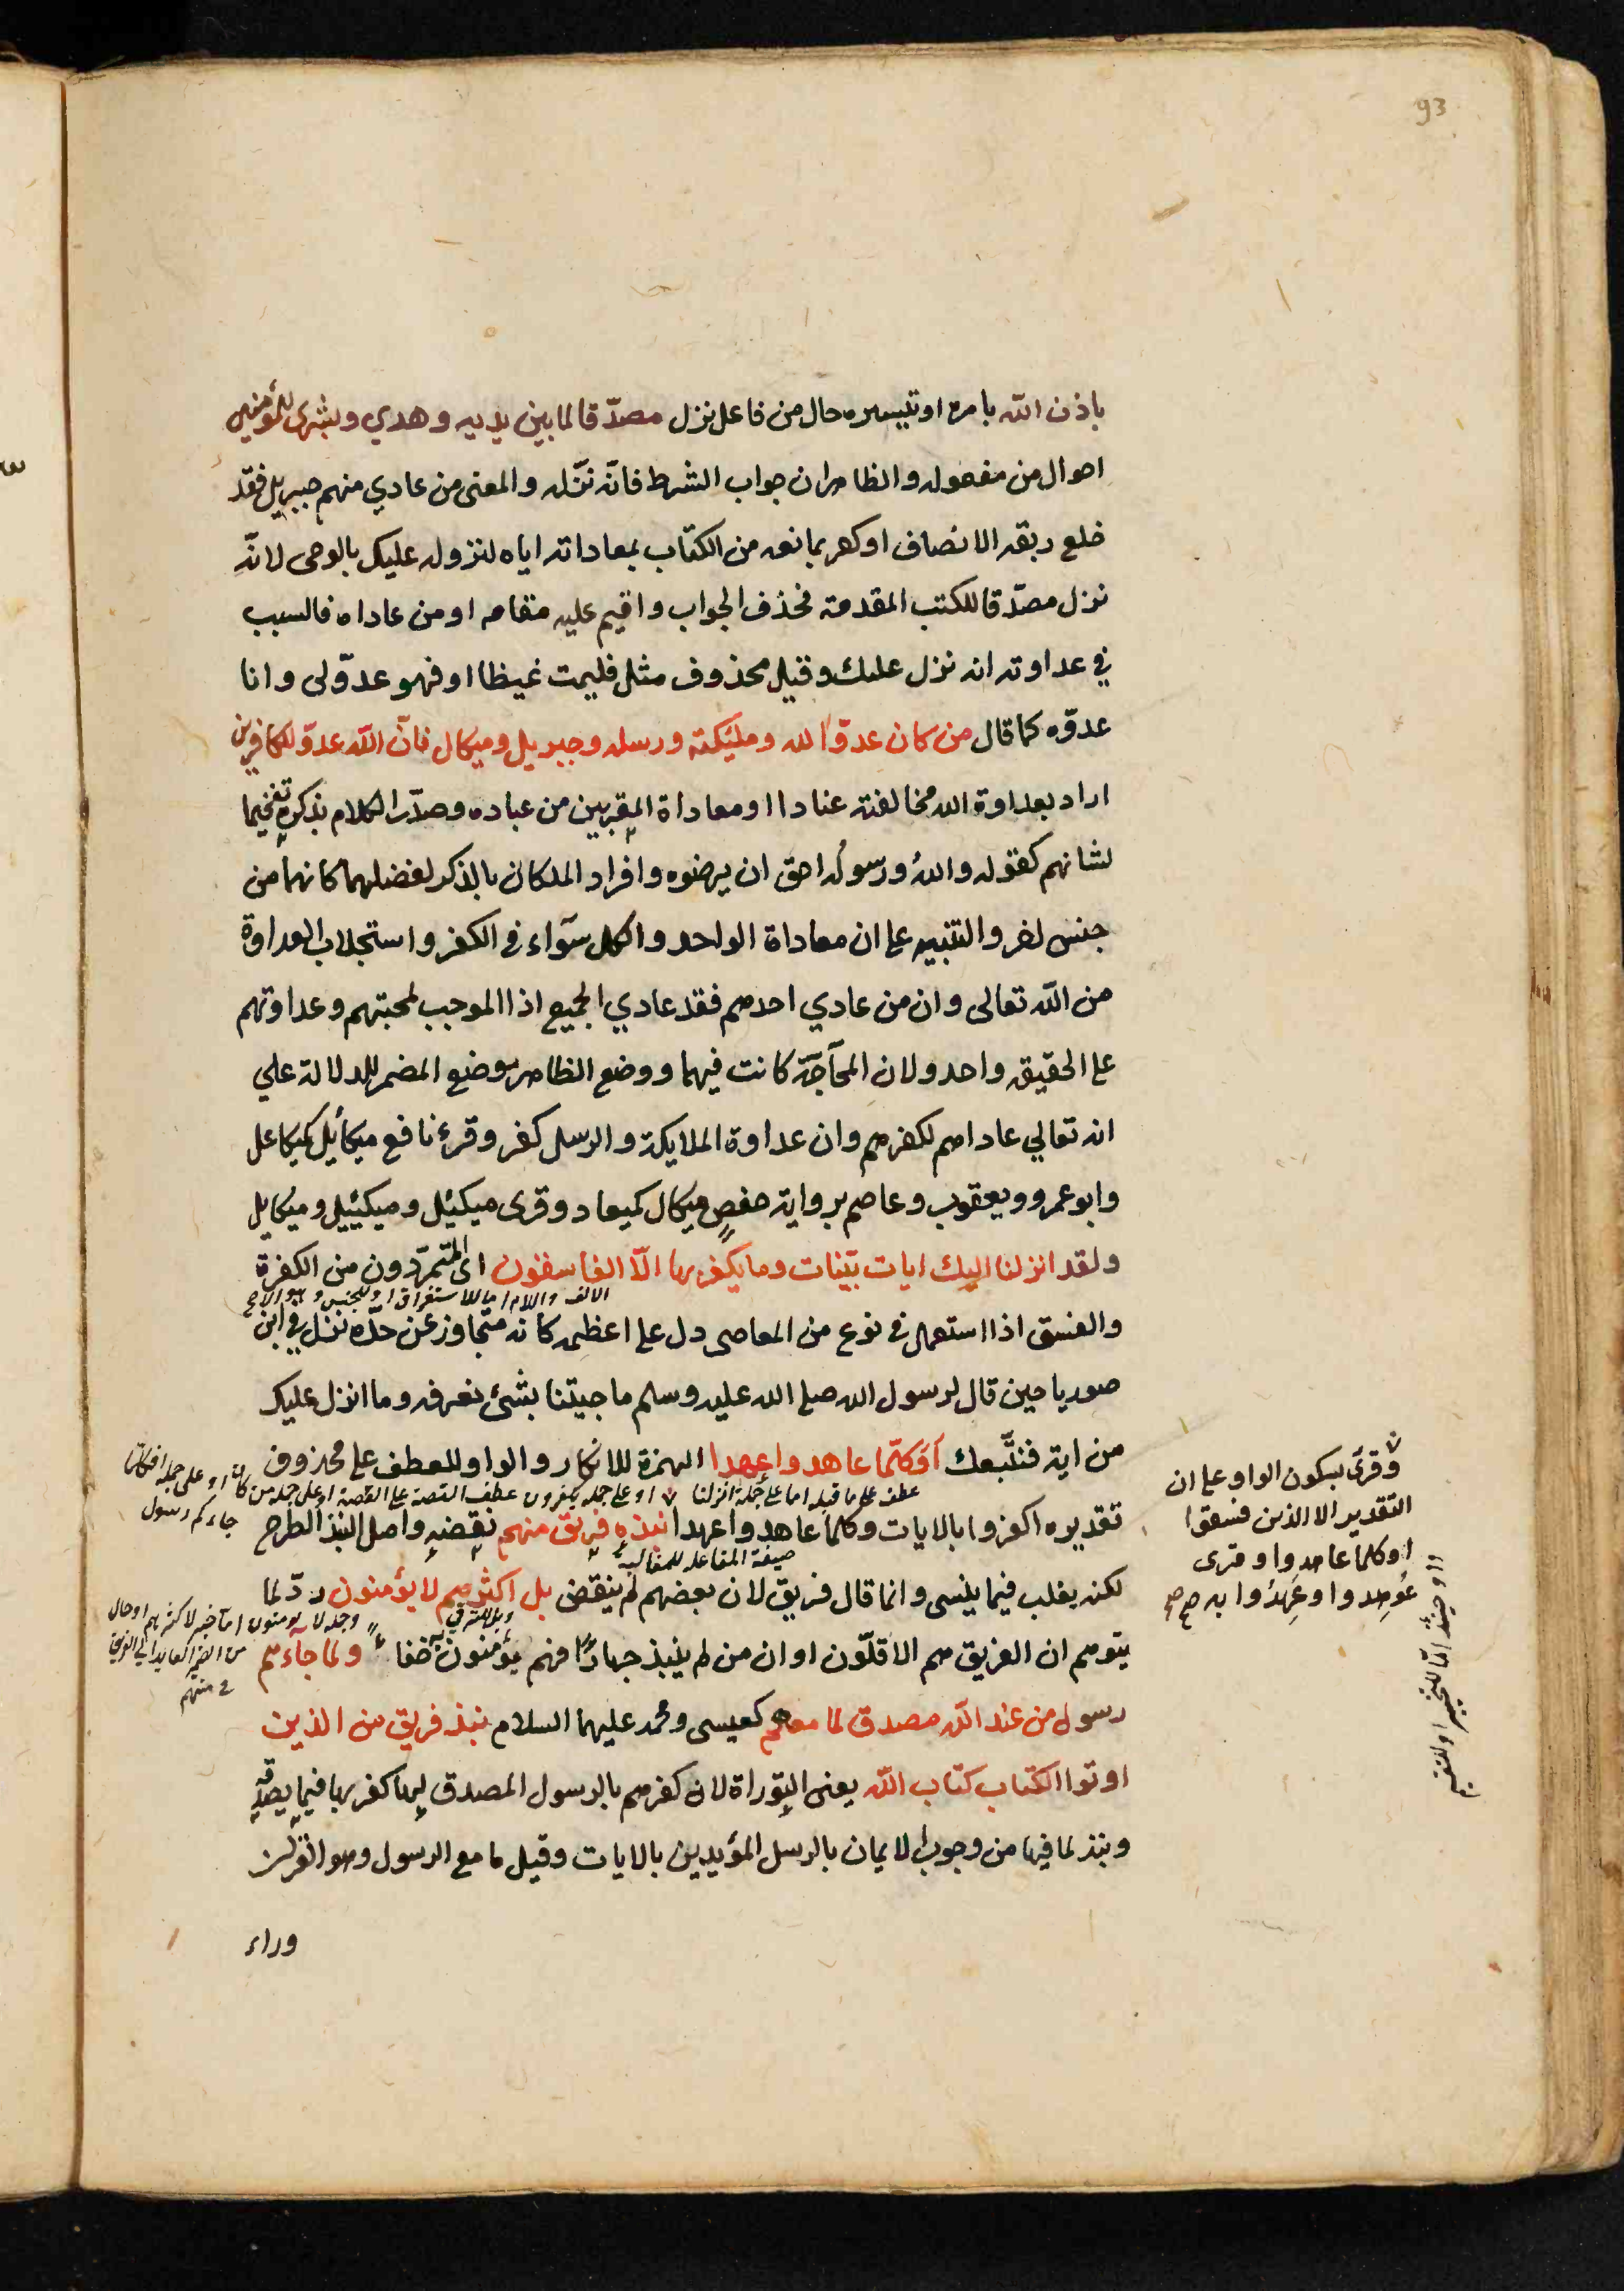 93
باذن الله بامره او تيسيره حال من فاعل نزل مصدّقا لما بين يديه وهدي وبشرى للمؤمنين
احوال من مفعوله والظاهر ان جواب الشرط فانّه نزّله والمعنى من عادي منهم جبريل فقد
خلع ربقة الانصاف او كفر بما نعه من الكتاب بمعاداته اياه لنزوله عليك بالوحى لانّه
نزل مصدّقا للكتب المقدمة فحذف الجواب واقيم عليه مقامه او من عاداه فالسبب
في عداوته انه نزل عليك وقيل محذوف مثل فليمت غيظا او فهو عدوّ لى وانا
عدوّه كما قال من كان عدوّا لله ومليكته ورسله وجبريل وميكال فانّ الله عدوّ للكافرين
اراد بعداوة الله مخالفته عنادا او معاداة المقربين من عباده وصدّر الكلام بذكره تفخيما
لشانهم كقوله والله ورسوله احق ان يرضوه وافراد الملكان بالذكر لفضلهما كانهما من
جنس اخر والتنبيه على ان معاداة الواحد والكل سوآء في الكفر واستجلاب العداوة
من الله تعالى وان من عادي احدهم فقد عادي الجميع اذا الموجب لمحبتهم وعداوتهم
على الحقيقه واحد ولان المحآجّة كانت فيهما ووضع الظاهر موضع المضمر للدلالة علي
انه تعالي عاداهم لكفرهم وان عداوة الملايكة والرسل كفر وقرء نافع ميكائل كميكاعل
وابو عمرو ويعقوب وعاصم برواية حفص ميكال كميعاد وقرى ميكئل وميكئيل وميكايل
ولقد انزلنا اليك ايات بيّنات وما يكفر بها الّا الفاسقون اى المتمرّدون من الكفرة
الالف واللام اما للاستغراق او للجنس وهو الاصح
والفسق اذا استعمل في نوع من المعاصى دل على اعظمه كانه متجاوز عن حدّه نزل في ابن
صوريا حين قال لرسول الله صلى الله عليه وسلم ما جيتنا بشئ نعرفه وما انزل عليك
من اية فنتّبعك اَوَكلّما عاهدوا عهدا الهمزة للانكار والواو للعطف على محذوف
عطف على ما قبله اما على جملة انزلنا او على جملة يكفرون عطف القصة على القصة او على جملة من كان او على جملة افكلما
جاءكم رسول
تقديره اكفروا بالايات وكلما عاهدوا عهدا نبذه فريق منهم نقضه واصل النبذ الطرح
صيغة المفاعلة للمغالبة
لكنه يغلب فيما ينسى وانما قال فريق لان بعضهم لم ينقض بل اكثرهم لا يؤمنون ردّ لما
وبل للترقي
وجملة لا يومنون اما خبر لاكثرهم او حال
من الضمير العايد الي الفريق
في منهم
يتوهم ان الفريق هم الاقلّون او ان من لم ينبذ جهارًا فهم يؤمنون خفا ولما جاءهم
رسول من عند الله مصدق لما معهم كعيسى ومحمد عليهما السلام نبذ فريق من الذين
اوتوا الكتاب كتاب الله يعنى التوراة لان كفرهم بالرسول المصدق لها كفر بها فيما يصدّقه
ونبذ لما فيها من وجوب الايمان بالرسل المؤيدين بالايات وقيل ما مع الرسول وهو القرآن
وراء
وقرئ بسكون الواو على ان
التقدير الا الذين فسقوا
اوكلما عاهدوا وقرى
عُوهِدوا وعَهِدُوا به صح صح